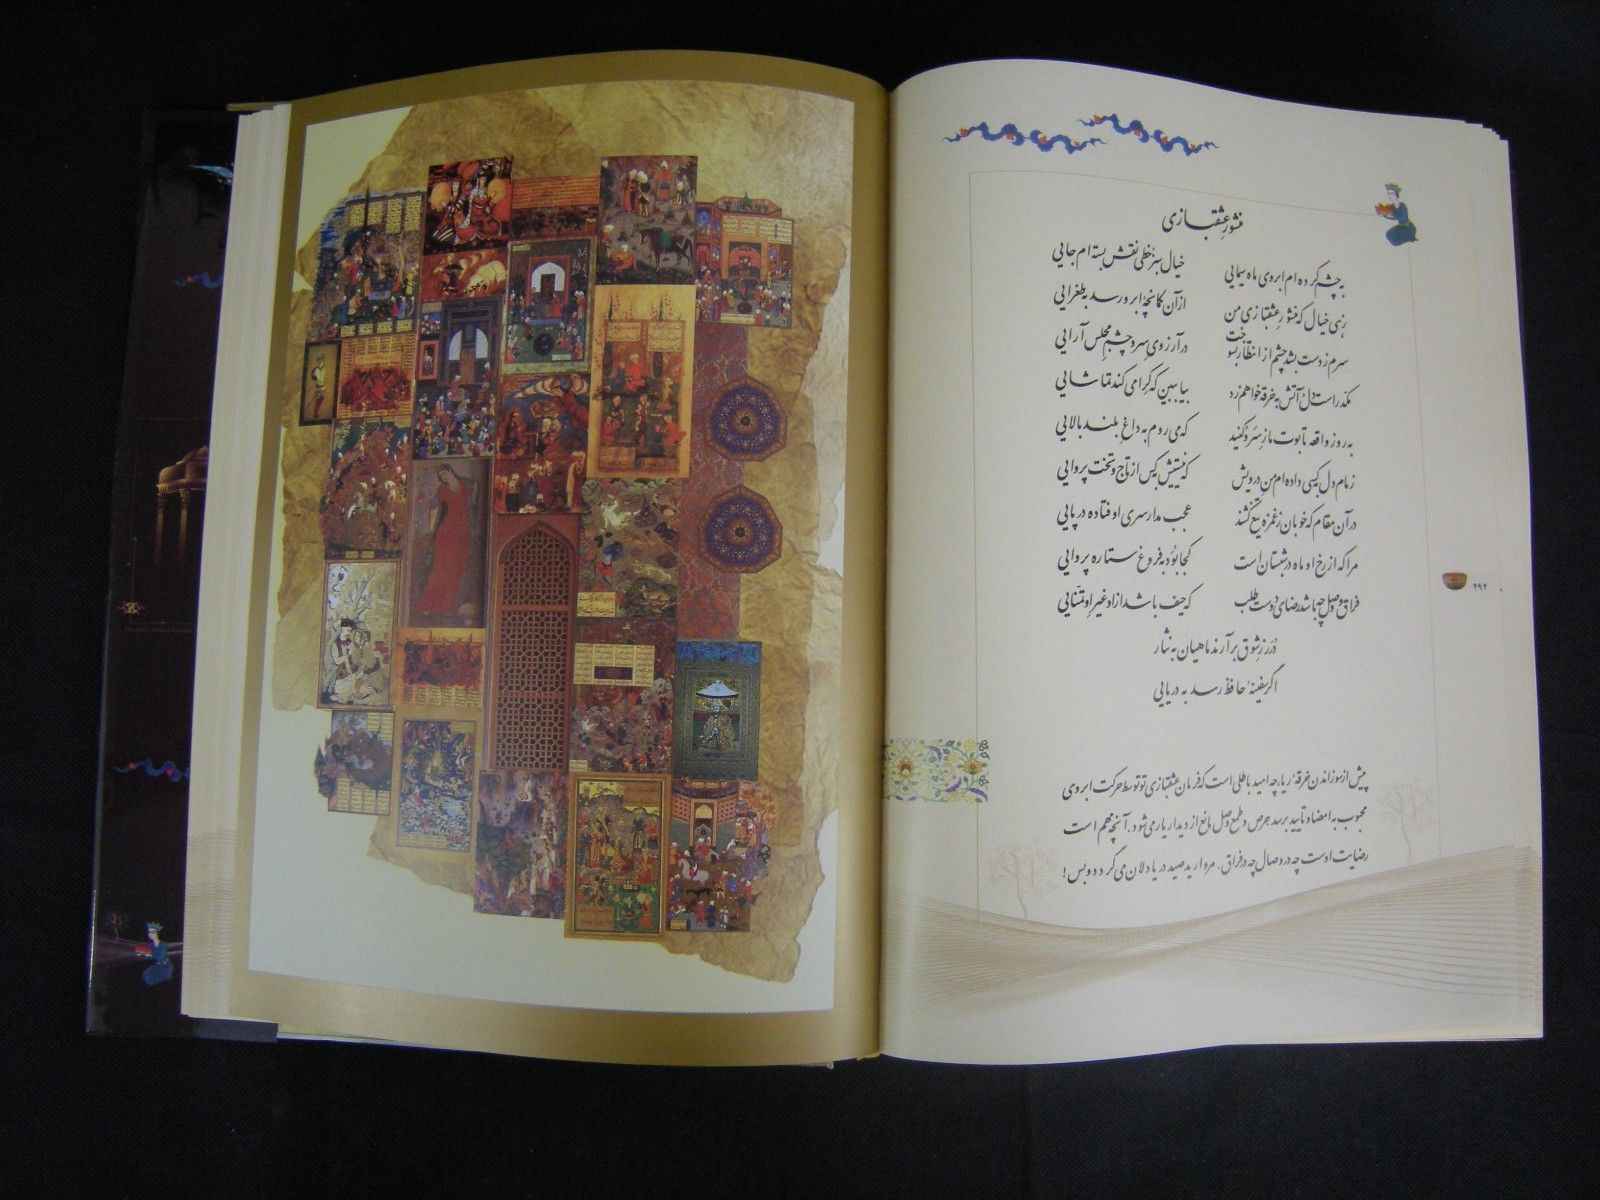 منشور عشقبازی
به چشم کرده ام ابروی ماه سیمایی خیال سبز خطی نقش بسته ام جایی
زهی خیال که منشور عشقبازی من از آن کمانچهٔ ابرو رسد به طغرایی
سرم ز دست بشد چشم از انتظار بسوخت در آرزوی سر و چشم مجلس آرایی
مکدر است دل آتش به خرقه خواهم زد بیا ببین که کرا می کند تماشایی
به روز واقعه تابوت ما ز سرو کنید که می روم به داغ بلند بالایی
زمام دل به کسی داده ام من درویش که نیستش به کس از تاج و تخت پروایی
در آن مقام که خوبان ز غمزه تیغ کشند عجب مدار سری اوفتاده در پایی
مرا که از رخ او ماه در شبستان است کجا بود به فروغ ستاره پروایی
فراق و وصل چه باشد رضای دوست طلب که حیف باشد از او غیر او تمنّایی
درر ز شوق برآرند ماهیان به نثار
اگر سفینهٔ حافظ رسد به دریایی
پیش از سوزاندن خرقهٔ ریا، چه امید باطلی است که فرمان عشقبازی تو توسط حرکت ابروی
محبوب به امضاء و تأیید برسد حرص و طمع وصل مانع از دیدار یار می شود. آنچه مهم است
رضایت اوست چه در وصال چه در فراق. مروارید صید دریا دلان می گردد و بس!
۲۹۲